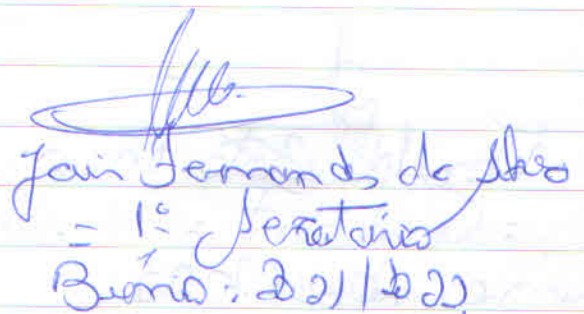 Jair Fernandes de Silva
= 1º Secretário
Biênio: 2021/2022